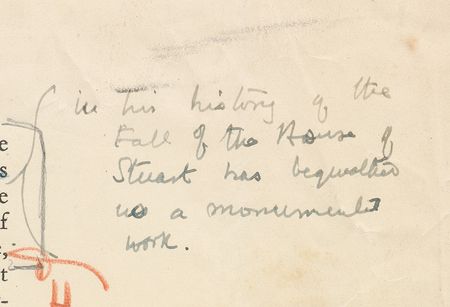 in his history of the
Fall of the House of
Stuart has bequeathed
us a monumental
work.